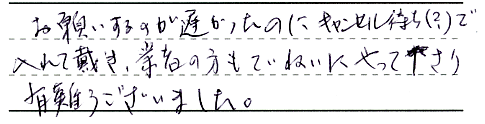 お願いするのが遅かったのに、キャンセル待ち(?)で
入れて戴き、業者の方もていねいにやって下さり
有難うございました。